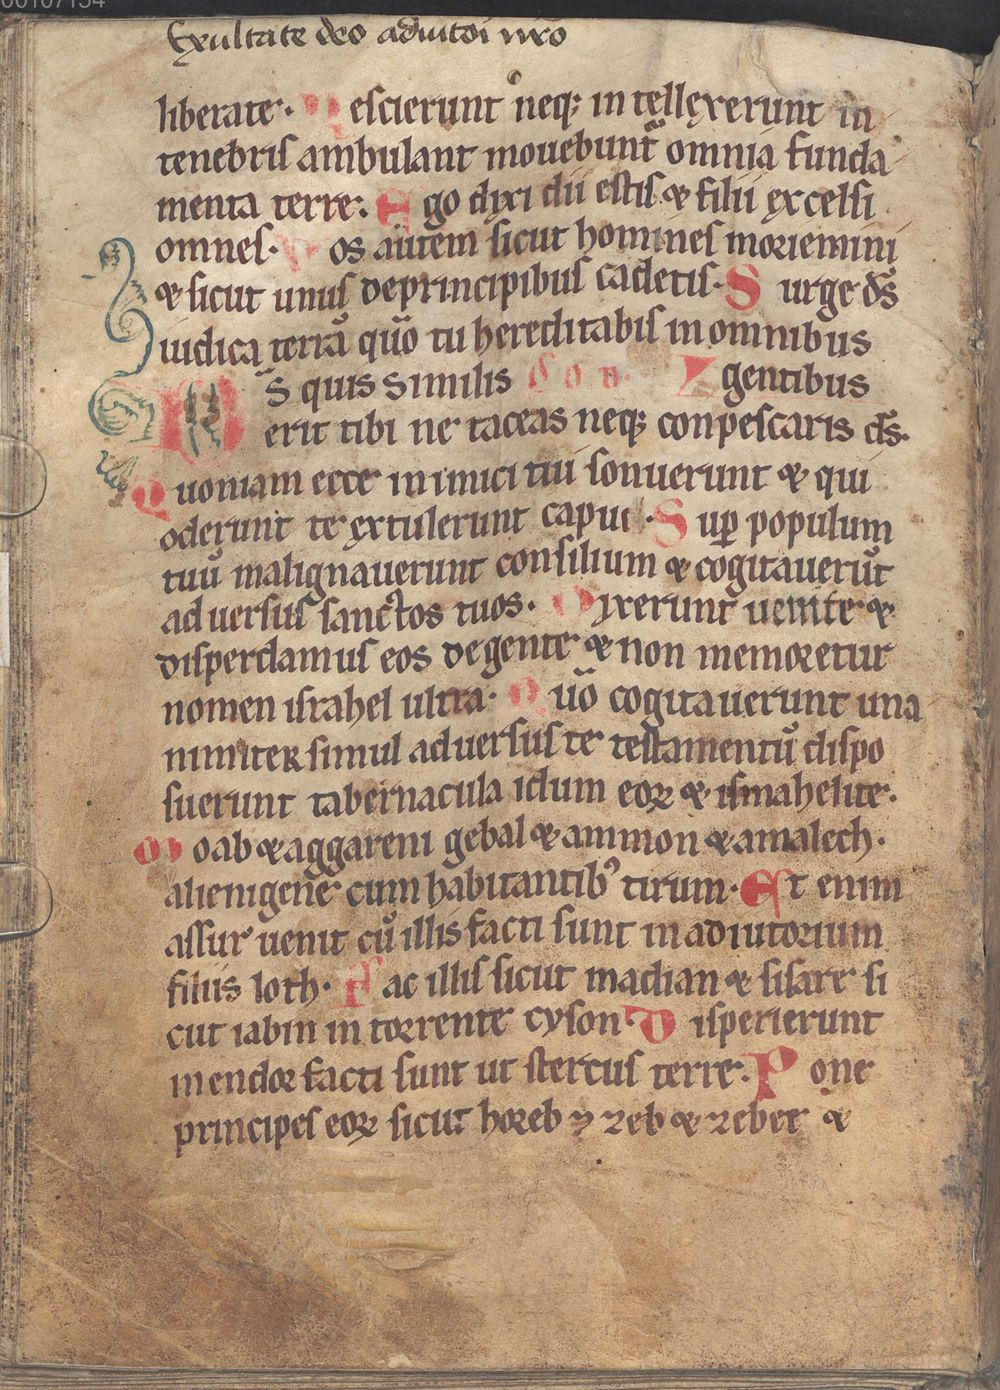 00107154
Exultate deo adiutoi nr̄o
liberate. Nescierunt neq; intellexerunt in
tenebris ambulant mouebunt᷑ omnia funda
menta terre. Ego dixi dii estis & filii excelsi
omnes. Vos autem sicut homines moriemini
& sicut unus de principibus cadetis. Surge ds̄
iudica terrā quō tu hereditabis in omnibus
Ds̄ quis similis gentibus
erit tibi ne taceas neq; conpescaris ds̄.
Quoniam ecce inimici tui sonuerunt & qui
oderunt te extulerunt caput. Suꝑ populum
tuū malignauerunt consilium & cogitauerūt
aduersus sanctos tuos. Dixerunt uenite &
disperdamus eos de gente & non memoretur
nomen israhel ultra. Quō cogitauerunt una
nimiter simul aduersus te testamentū dispo
suerunt tabernacula idum eoꝝ & ismahelite.
Moab & aggareni gebal & ammon & amalech.
alienigene cum habitantibꝰ tirum. Et enim
assur uenit cū illis facti sunt in adiutorium
filiis loth. Fac illis sicut madian & sisare si
cut iabin in torrente cyson. Disperierunt
in endor facti sunt ut stercus terre. Pone
principes eoꝝ sicut horeb ⁊ zeb & zebee &